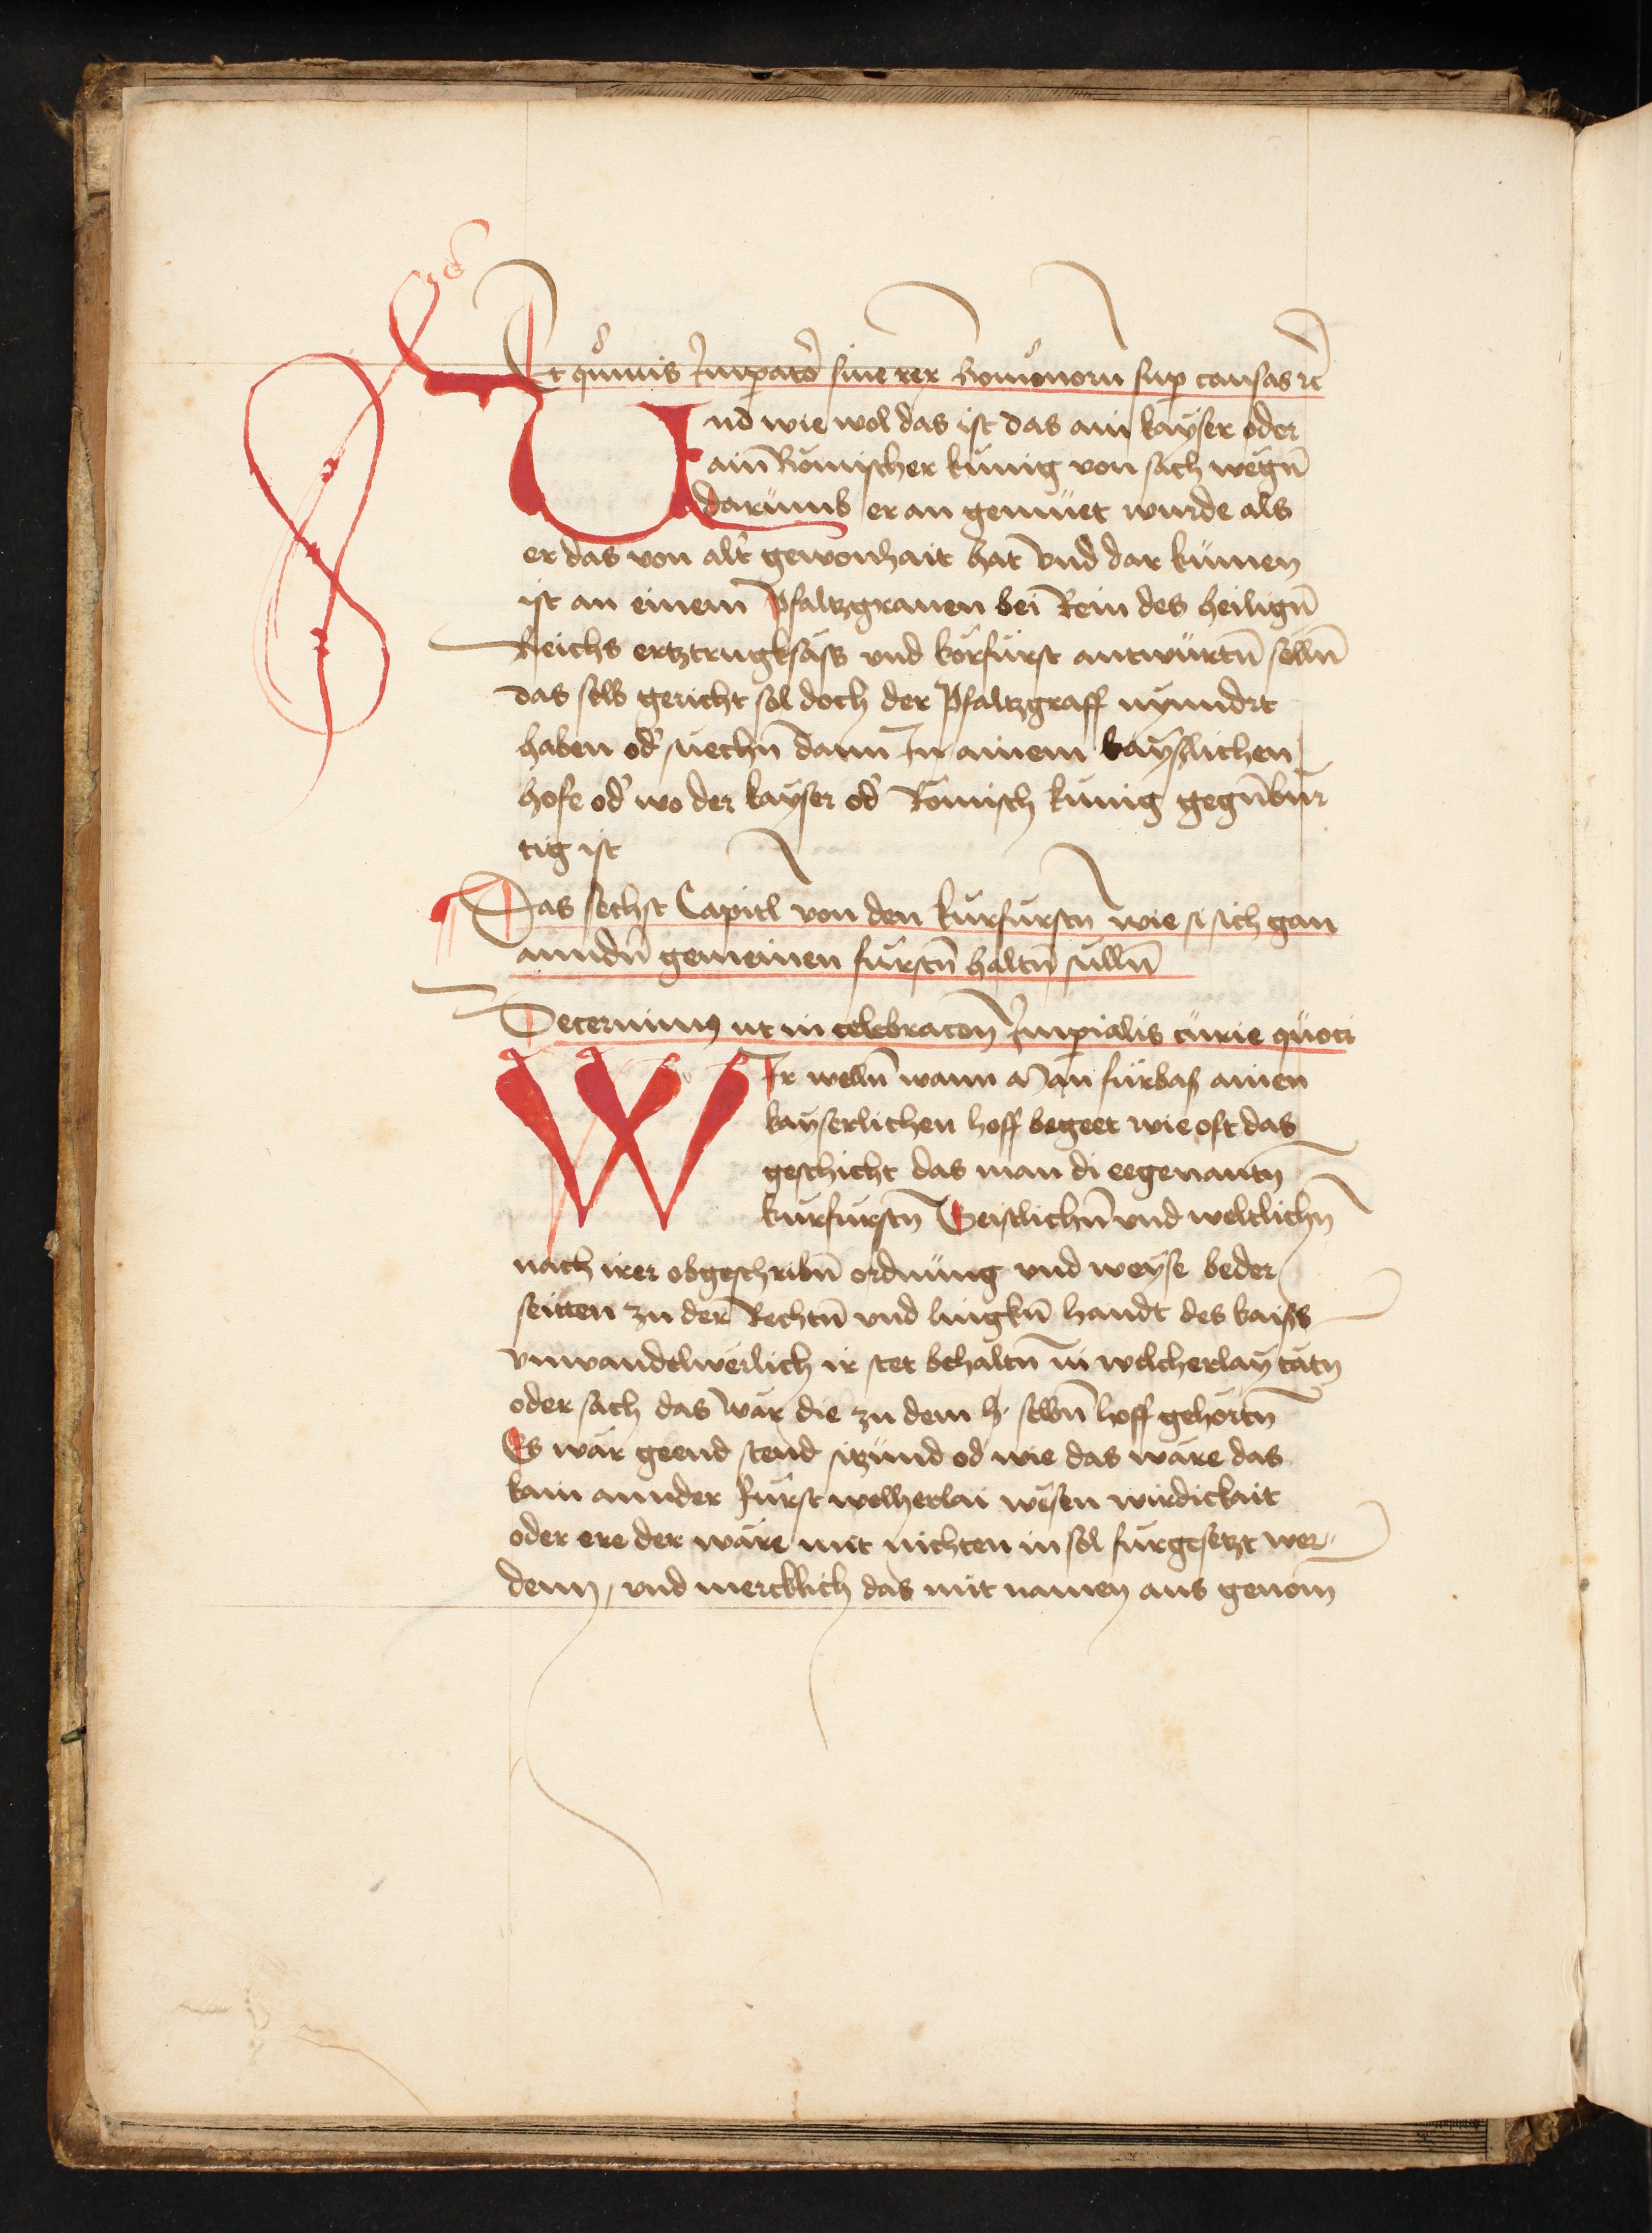 Et quāuis Imꝑatoꝛ siue rex Romonoru suꝑ causas ꝛc̄
Und wie wol das ist das ain kayser oder
ain̄ Römischer kunig von sach wegn̄
darūmb er an gemüet wurde als
er das von alt̄ gewonhait hat vnd dar kumen
ist an einem Pfaltzgrauen bei Rein des heilign̄
Reichs ertztrugksäss vnd korfürst antwürtn̄ solln̄
das selb gericht sol doch der Pfaltzgraff nynndrt
haben od̄ suechn̄ dann In ainem kayslichen
hofe od̄ wo der kayser od̄ Romisch kunig gegn̄bur
tig ist
Das sechst Capitl von den kurfurstn̄ wie si sich gan
anndn̄ gemeinen furstn̄ haltn̄ sulln̄
Decernimꝰ ut in celebracon̄ Imꝑialis curie quoci
WIr welln̄ wann Man fürbas ainen
kayserlichen hoff begeet wie oft das
geschicht das man di eegenantn̄
kurfurstn̄ Geistlichn̄ vnd weltlichn̄
nach irer obgeschribn̄ ordnung vnd weyse beder
seitten zu der Rechtn̄ vnd lingkn̄ handt des kaiss
vnwandelwerlich ir stet behaltn̄ in welcherlay tatn̄
oder sach das war die zu dem h. selbn̄ hoff gehortn̄
Es wär geend stend sitzund od̄ wie das wäre das
kain annder Fürst welherlai wesen wirdickait
oder ere der wäre mit nichten in sol furgesetzt wer¬
denn, vnd mercklich das mit namen aus genom